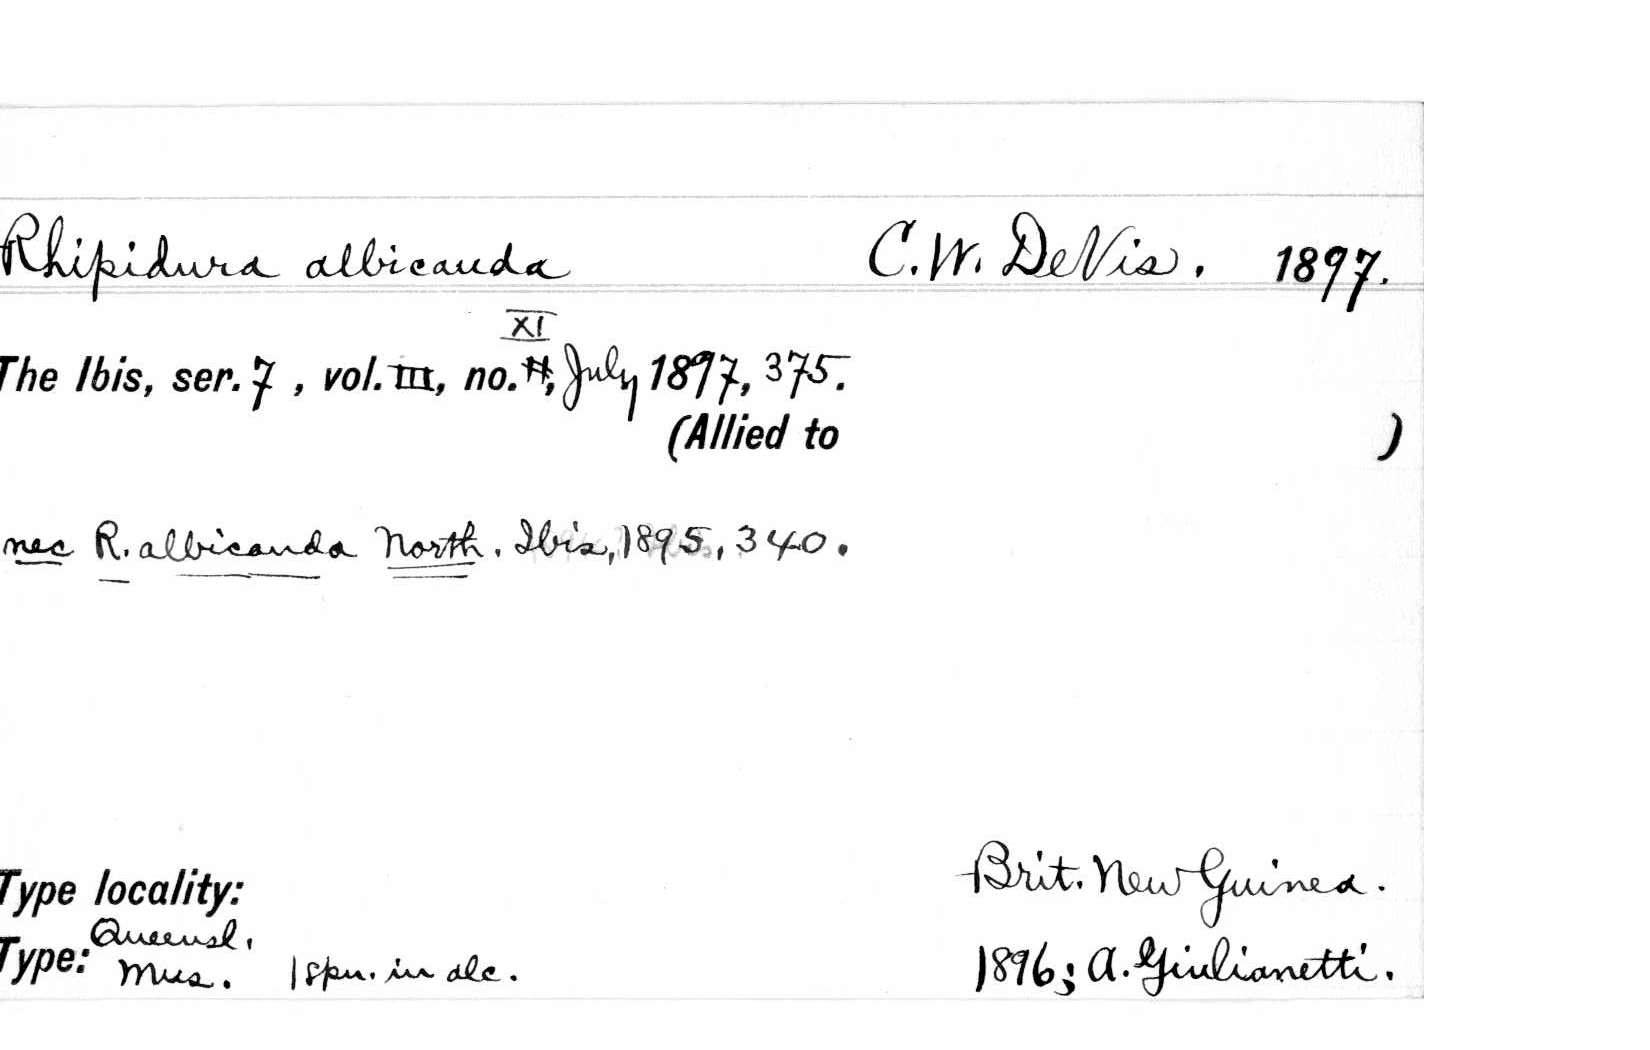 Rhipidura albicauda C.W. DeVis. 1897.
XI
The Ibis, ser. 7, vol. III, no. , July 1897, 375.
(Allied to )
nec R. albicauda North. Ibis, 1895, 340.
Brit. New Guinea.
Type locality:
Queensl.
Type: Mus. 1 spn. in alc. 1896; A. Giulianetti.